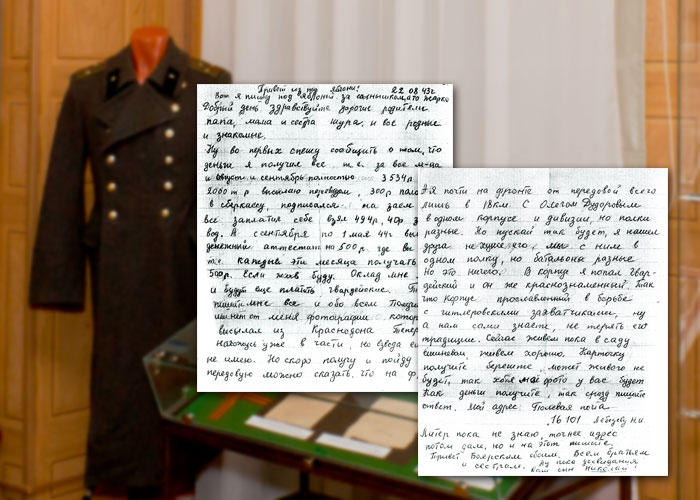 Привет из под яблони! 22 08 43г
Вот я пишу под яблоней за солнышком, ато жарко
Добрый день здравствуйте дорогие родители
папа, мама и сестра Шура, и все родные
и знакомые.
Ну во первых спешу сообщить о том, что
деньги я получил все т.е. за все м-ца
и август и сентябрь полностью 3534р
2000 т р высылаю переводом, 300р
в сберкассу, подписался на заем
все заплатил себе взял 494р, 40р з
вод. А с сентября по 1 мая 44г
денежний аттестат на 500р где вы
т.е. каждыя эти месяца получать
500р. Если жив буду. Оклад мне
и будут еще платить гвардейские.
пишите мне все и обо всем
имеет меня фотографии котор
высылал из Краснодона Тепер
нахожусь уже в части, но взвода е
не имею. Но скоро получу и пойду
передовую можно сказать, что на ф
Э-Я почти на фронте от передовой всего
лишь в 18км. С Олегом Дудоровым
в одном корпусе и дивизии, но полки
разные. Но пускай так будет, я нашел
друга не хуже его, мы с ним в
одном полку, но батальоны разные
Но это ничего. В корпус я попал Гвар-
дейский и он же краснознаменный. Так
что корпус прославленный в борьбе
с гитлеровскими захватчиками, ну
а нам сами знаете, не терять его
традиции. Сейчас живем пока в саду
вишневом, живем хорошо. Карточку
получите, берешите, может живого не
будет, так хотя мое фото у вас будет
Как деньги получите, так сразу пишите
ответ. Мой адрес: Полевая почта
16 101 Лебедев Н.И.
Литер пока не знаю, точнее адрес
потом дам, но и на этот пишите
Привет Боярским обоим. Всем братьям
и сестрам. Ну пока досвидания
Ваш сын Николай!